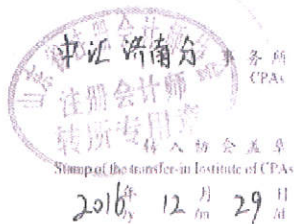 中汇济南分 事务所
CPAs
山东省注册会计师协会
注册会计师
转所专用章
转入协会盖章
Stamp of the transfer-in Institute of CPAs
2016年 12月 29日
/y /m /d